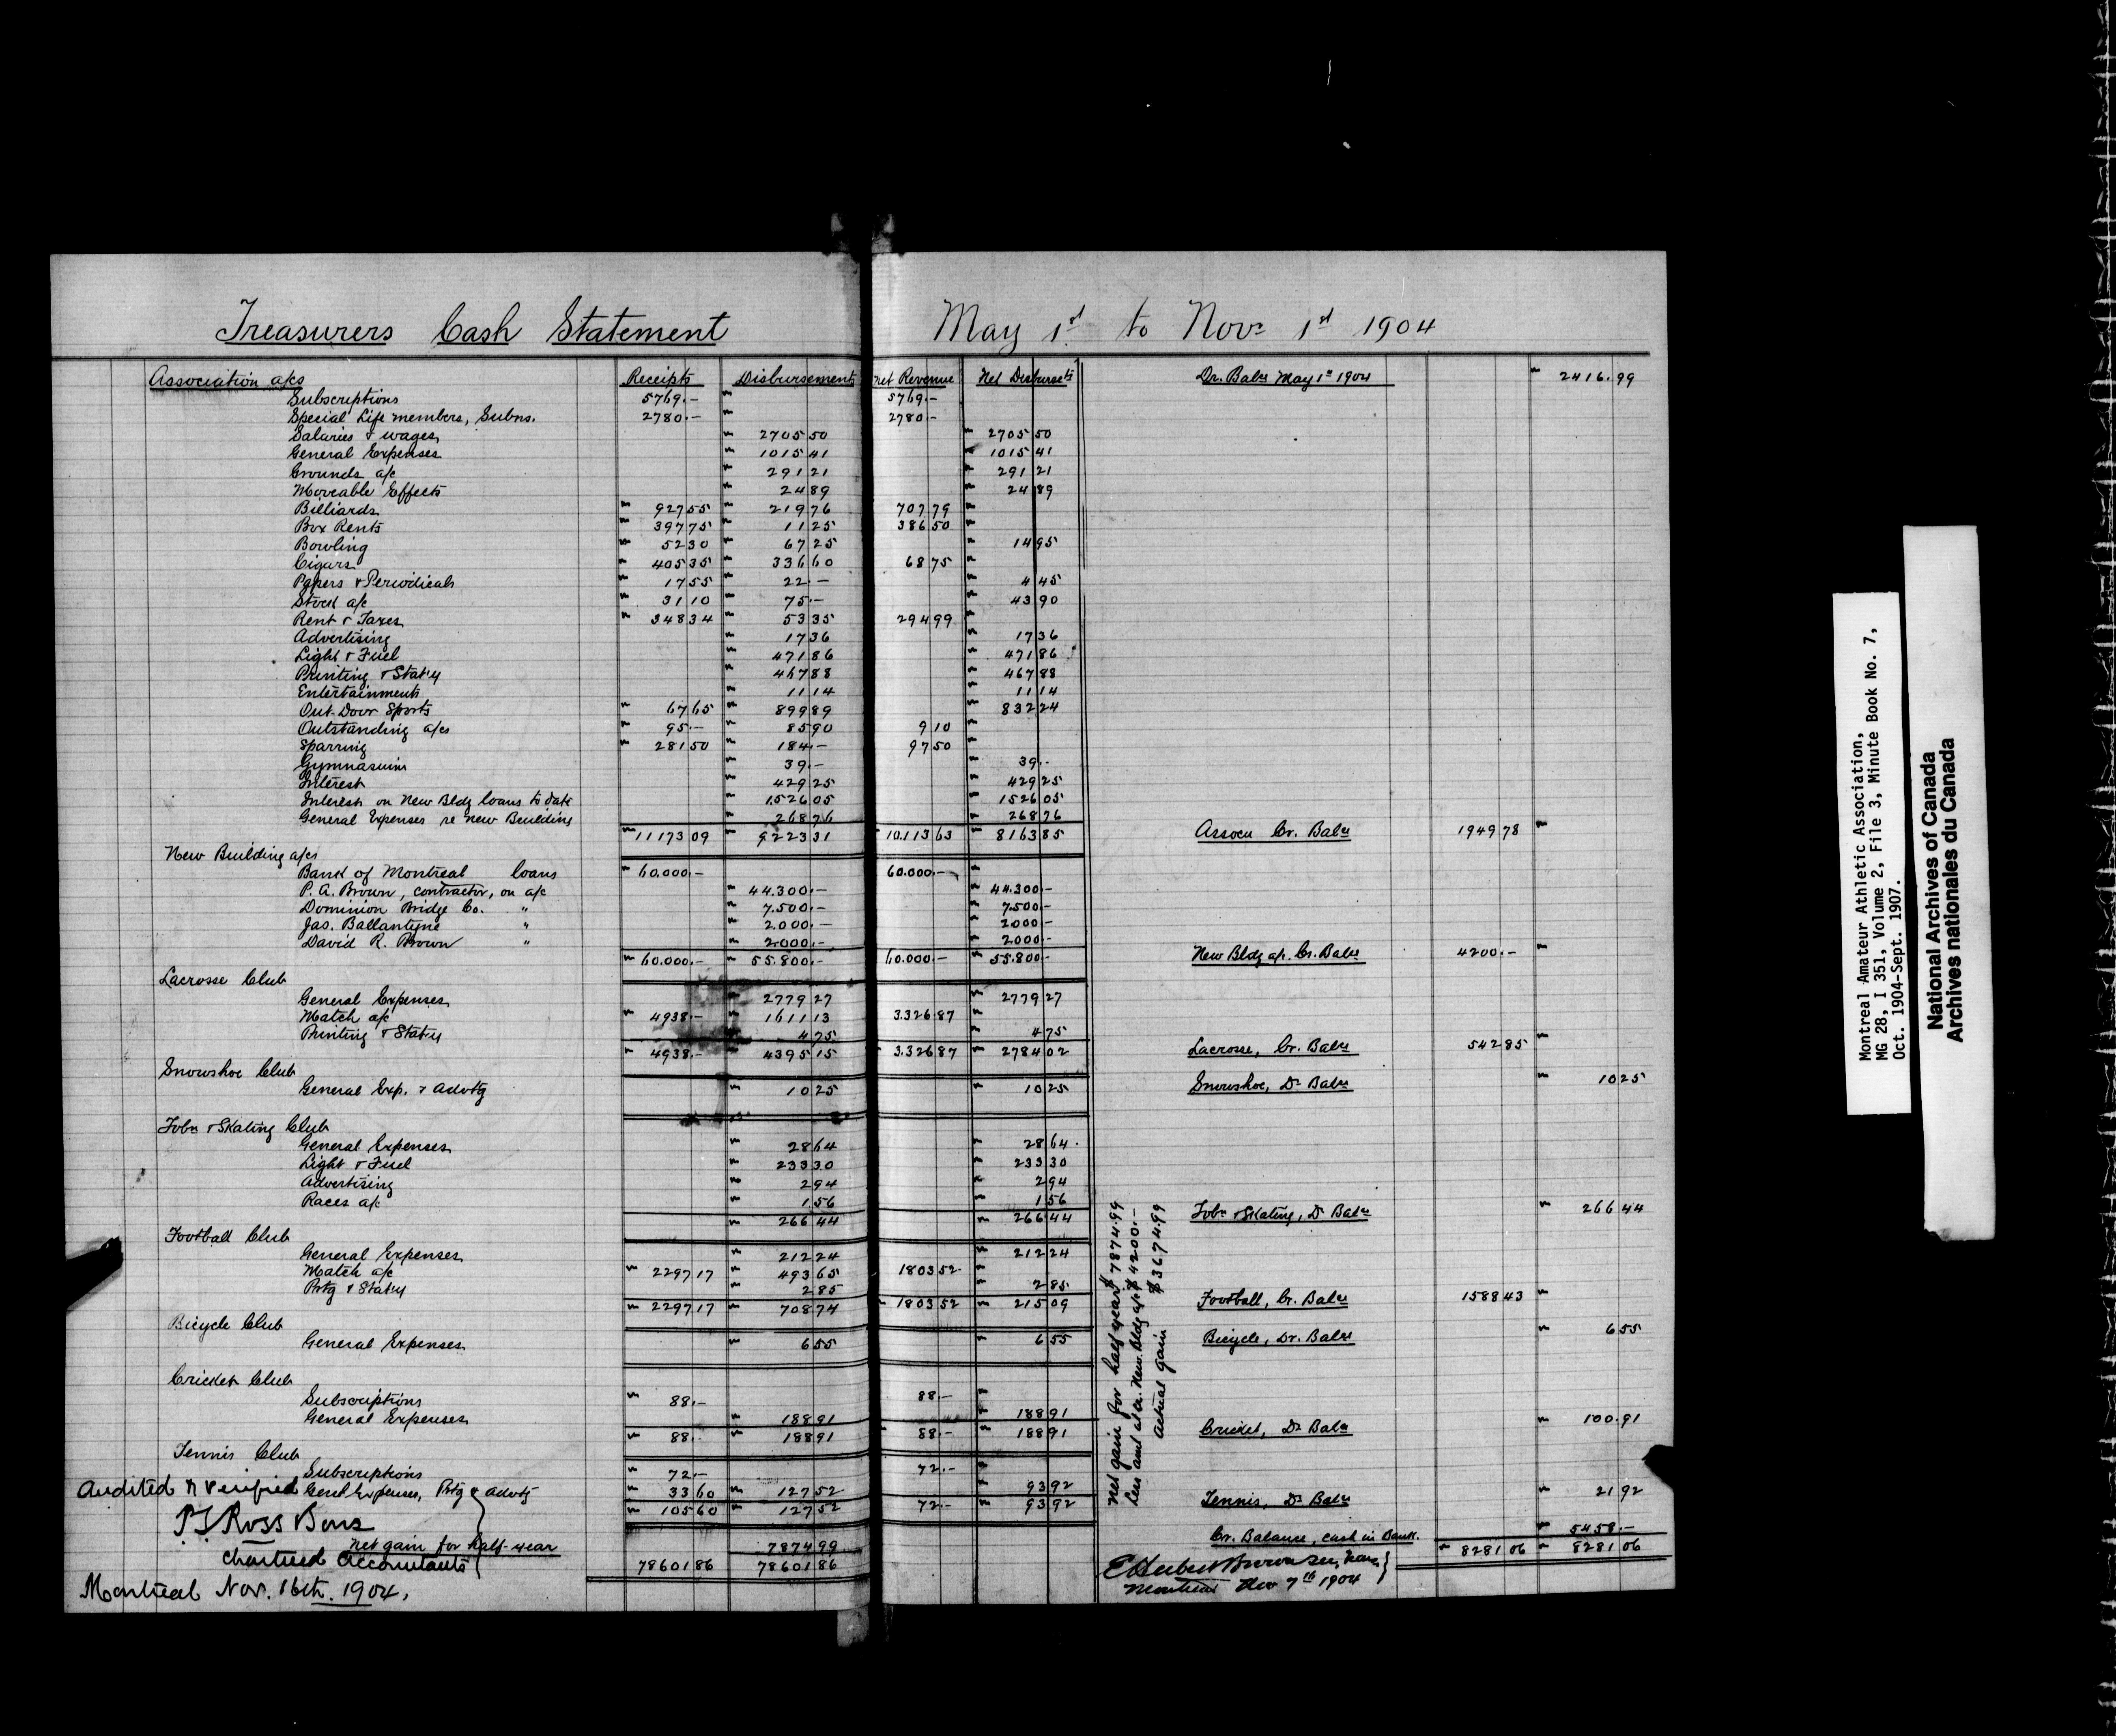 Treasurers Cash Statement May 1st to Novr 1st 1904
Association a/cs Receipts Disbursements Net Revenue Net Disbursets Dr. Balce May 1st 1904 " 2416.99
Subscriptions 5769.- " 5769.-
Special Life members, Subns. 2780.- " 2780.-
Salaries & wages " 2705 50 " 2705 50
General Expenses " 1015 41 " 1015 41
Grounds a/c " 291 21 " 291 21
Moveable Effects " 24 89 " 24 89
Billiards " 927 55 " 219 76 707 79 "
Box Rents " 397 75 " 11 25 386 50 "
Bowling " 52 30 " 67 25 " 14 95
Cigars " 405 35 " 336 60 68 75 "
Papers & Periodicals " 17 55 " 22.- " 4 45
Stock a/c " 31 10 " 75.- " 43 90
Rent & Taxes " 348 34 " 53 35 294 99 "
Advertising " 17 36 " 17 36
Light & Fuel " 471 86 " 471 86
Printing & Stat'y " 467 88 " 467 88
Entertainments " 11 14 " 11 14
Out-Door Sports " 67 65 " 899 89 " 832 24
Outstanding a/cs " 95.- " 85 90 9 10 "
Sparring " 281 50 " 184.- 97 50 "
Gymnasium " 39.- " 39.-
Interest " 429 25 " 429 25
Interest on New Bldg loans to date " 1526 05 " 1526 05
General Expenses re New Building " 268 76 " 268 76
" 11173 09 " 9223 31 " 10.113 63 " 8163 85 Assocn Cr. Balce 1949 78 "
New Building a/cs
Bank of Montreal loans " 60.000.- 60.000.- "
P. A. Brown, contractor, on a/c " 44.300.- " 44.300.-
Dominion Bridge Co. " " 7.500.- " 7.500.-
Jas. Ballantyne " " 2.000.- " 2000.-
David R. Brown " " 2.000.- " 2000.-
" 60.000.- " 55.800.- 60.000.- " 55.800.- New Bldg a/c. Cr. Balce 4200.- "
Lacrosse Club
General Expenses " 2779 27 " 2779 27
Match a/c " 4938.- " 1611 13 3.326.87 "
Printing & Stat'y " 4 75 " 4 75
" 4938.- " 4395 15 " 3.326 87 " 2784 02 Lacrosse, Cr. Balce 542 85 "
Snowshoe Club
General Exp. & Advtg " 10 25 " 10 25 Snowshoe, Dr Balce " 10 25
Tobn & Skating Club
General Expenses " 28 64 " 28 64.
Light & Fuel " 233 30 " 233 30
Advertising " 2 94 " 2 94
Races a/c " 1 56 " 1 56
" 266 44 " 266 44 Tobn & Skating, Dr Balce " 266 44
Football Club
General Expenses " 212 24 " 212 24
Match a/c " 2297 17 " 493 65 1803 52 "
Prtg & Stat'y " 2 85 " 2 85
" 2297 17 " 708 74 " 1803 52 " 215 09 Football, Cr. Balce 1588 43 "
Bicycle Club
General Expenses " 6 55 " 6 55 Bicycle, Dr. Balce " 6 55
Cricket Club
Subscriptions " 88.- 88.- "
General Expenses " 188 91 " 188 91
" 88.- " 188 91 " 88.- " 188 91 Cricket, Dr Balce " 100.91
Tennis Club
Subscriptions " 72.- 72.- "
Genl Expenses, Prtg & Advtg " 33 60 " 127 52 " 93 92
" 105 60 " 127 52 " 72.- " 93 92 Tennis, Dr Balce " 21 92
Cr. Balance, cash in Bank. " 5458.-
Net gain for half-year 7874 99
78601 86 78601 86 " 8281 06 " 8281 06
Audited & Verified
P S Ross & Sons
Chartered Accountants
Montreal Nov. 16th. 1904.
Net gain for half year $7874.99
Less amt at cr. New Bldg a/c $4200.-
Actual gain $3674.99
E Herbert Brown
Montreal Nov 7th 1904
Montreal Amateur Athletic Association,
MG 28, I 351, Volume 2, File 3, Minute Book No. 7,
Oct. 1904-Sept. 1907.
National Archives of Canada
Archives nationales du Canada